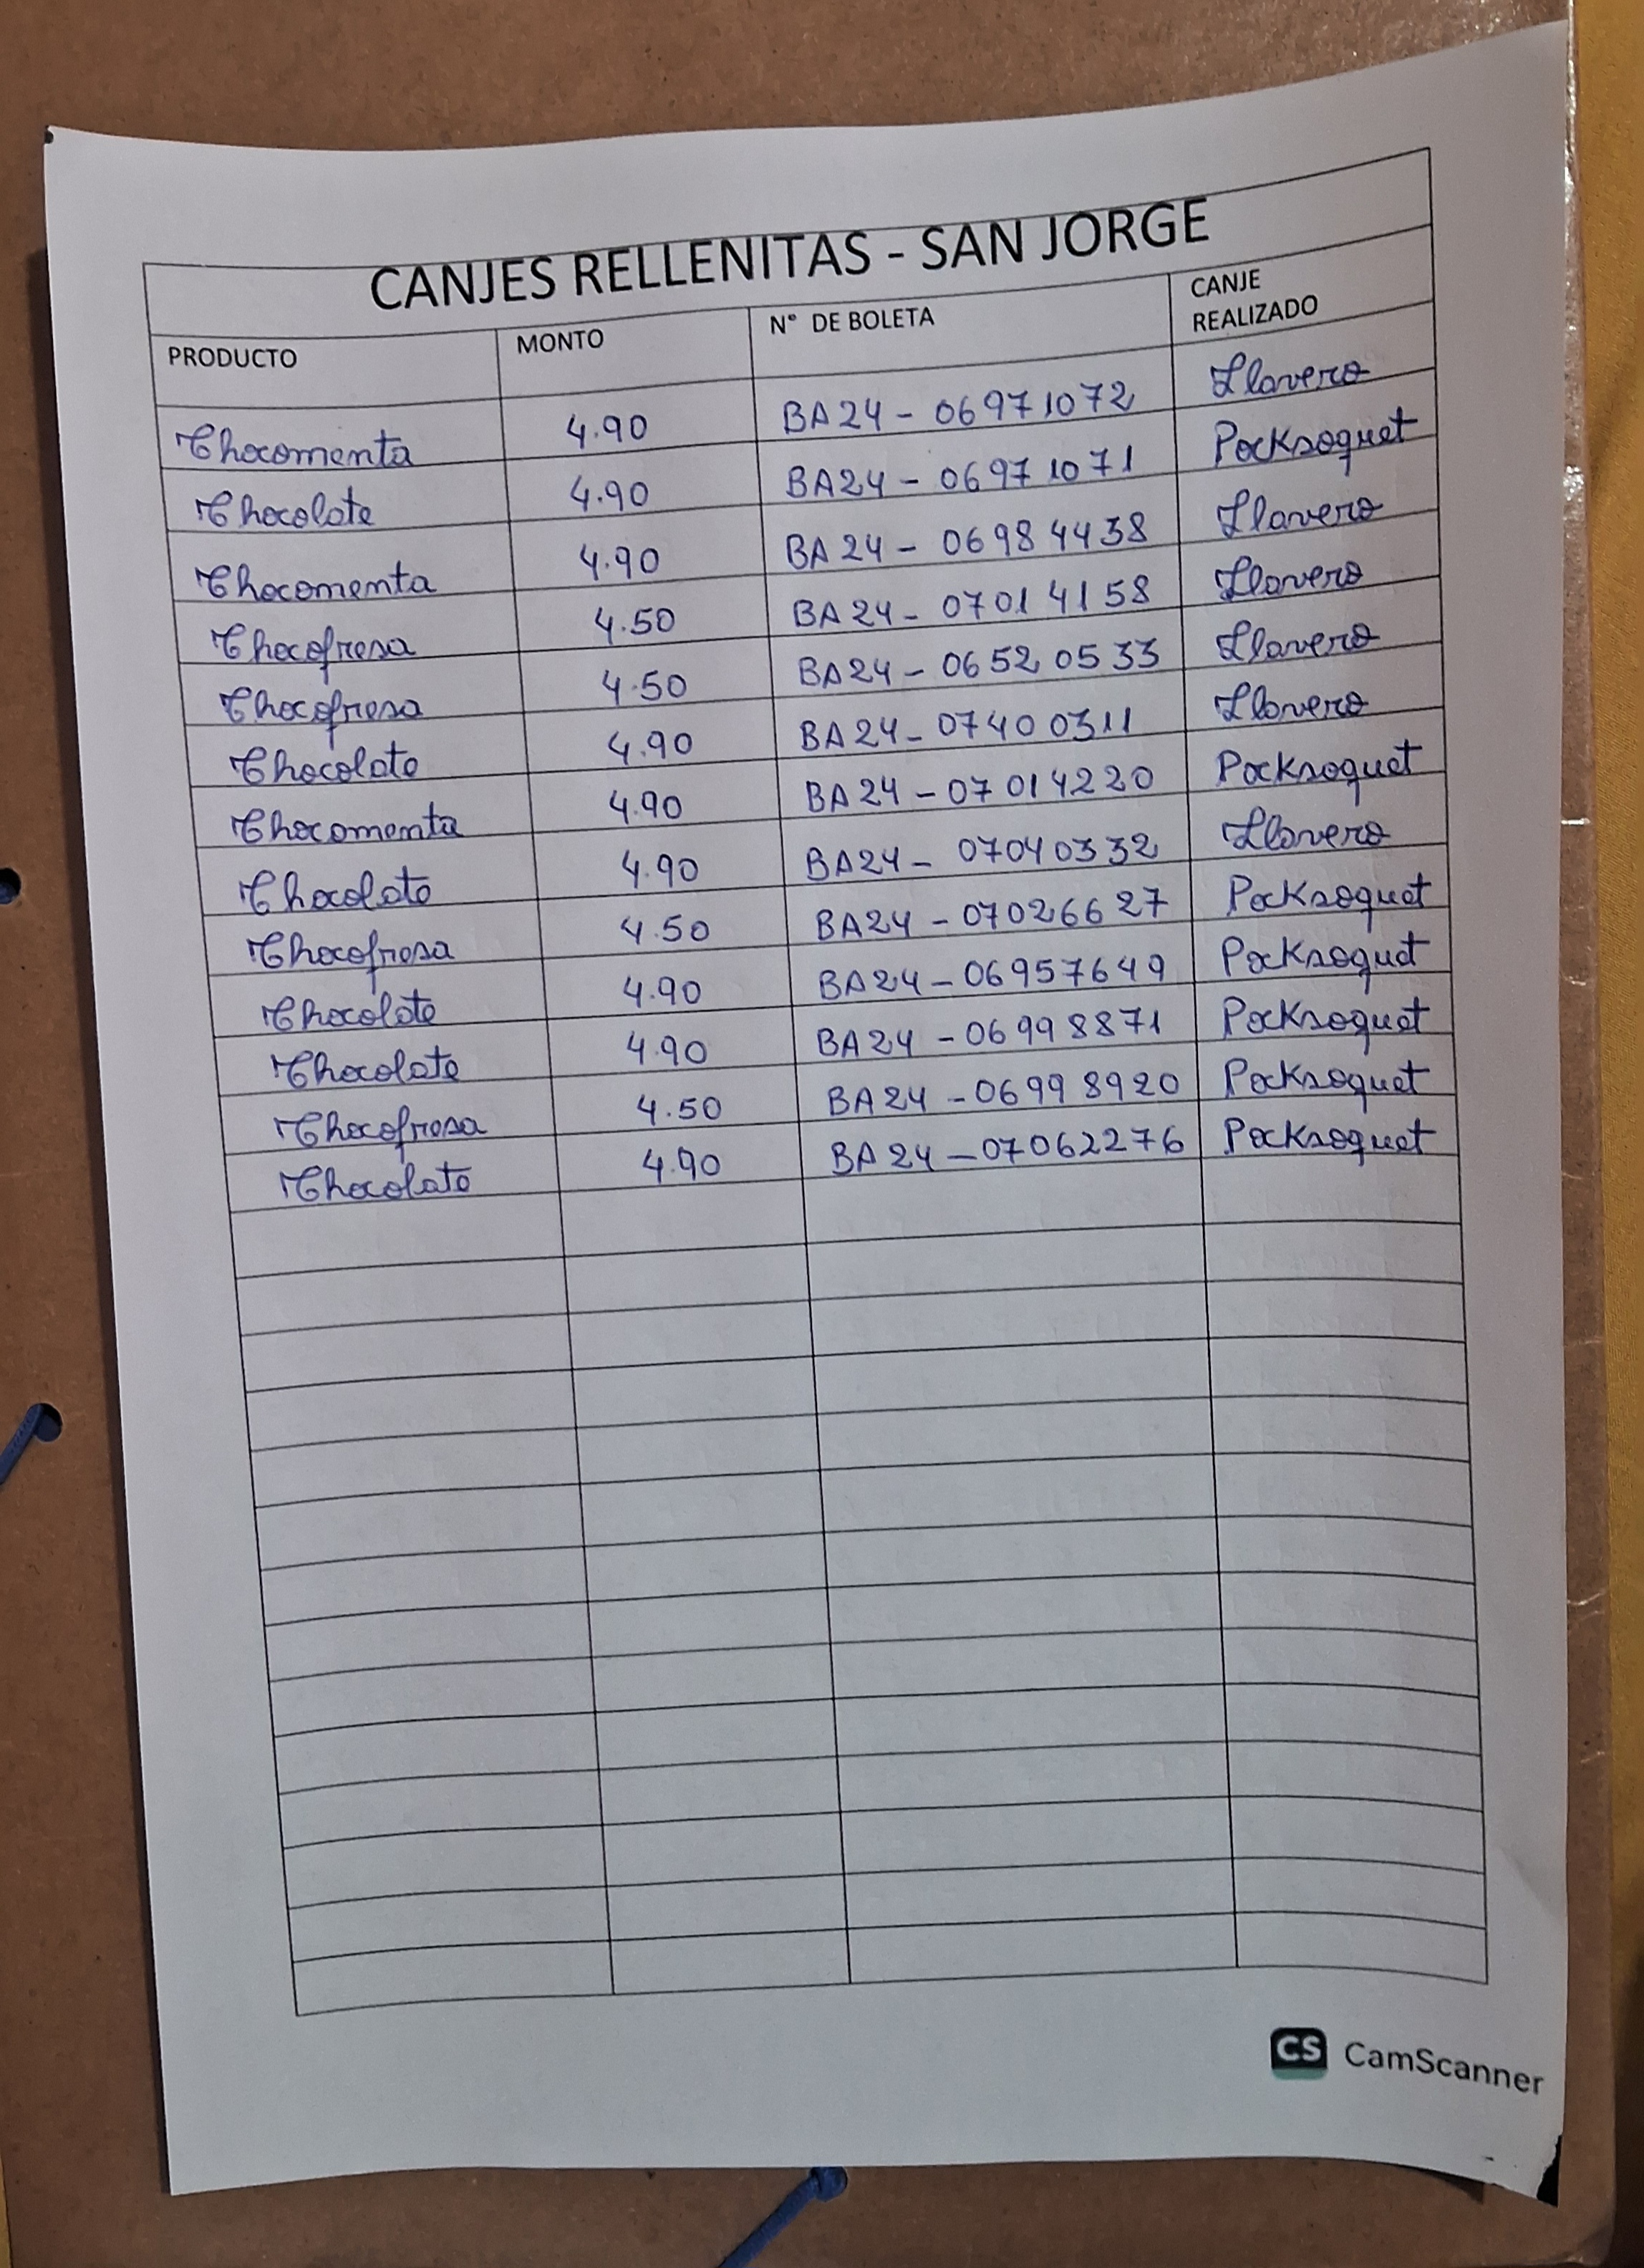 CANJES RELLENITAS - SAN JORGE
PRODUCTO MONTO N° DE BOLETA CANJE REALIZADO
Chocomenta 4.90 BA24 - 06971072 Llavero
Chocolate 4.90 BA24 - 06971071 Pocksoquet
Chocomenta 4.90 BA24 - 06984438 Llavero
Chocofresa 4.50 BA24 - 07014158 Llavero
Chocofresa 4.50 BA24 - 06520533 Llavero
Chocolate 4.90 BA24 - 07400311 Llavero
Chocomenta 4.90 BA24 - 07014220 Pocksoquet
Chocolate 4.90 BA24 - 07040332 Llavero
Chocofresa 4.50 BA24 - 07026627 Pocksoquet
Chocolate 4.90 BA24 - 06957649 Pocksoquet
Chocolate 4.90 BA24 - 06998871 Pocksoquet
Chocofresa 4.50 BA24 - 06998920 Pocksoquet
Chocolate 4.90 BA24 - 07062276 Pocksoquet
CS CamScanner